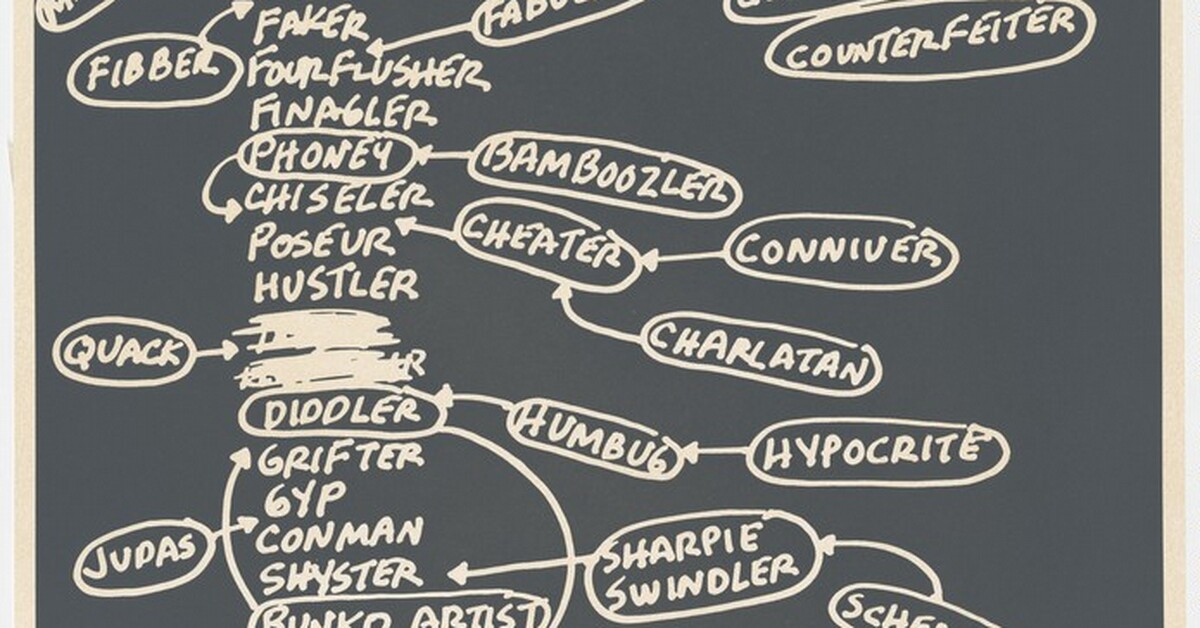 FAKER
COUNTERFEITER
FIBBER
FOURFLUSHER
FINAGLER
PHONEY
BAMBOOZLER
CHISELER
CHEATER
CONNIVER
POSEUR
HUSTLER
QUACK
CHARLATAN
DIDDLER
HUMBUG
HYPOCRITE
GRIFTER
GYP
CONMAN
JUDAS
SHARPIE
SWINDLER
SHYSTER
BUNKO ARTIST